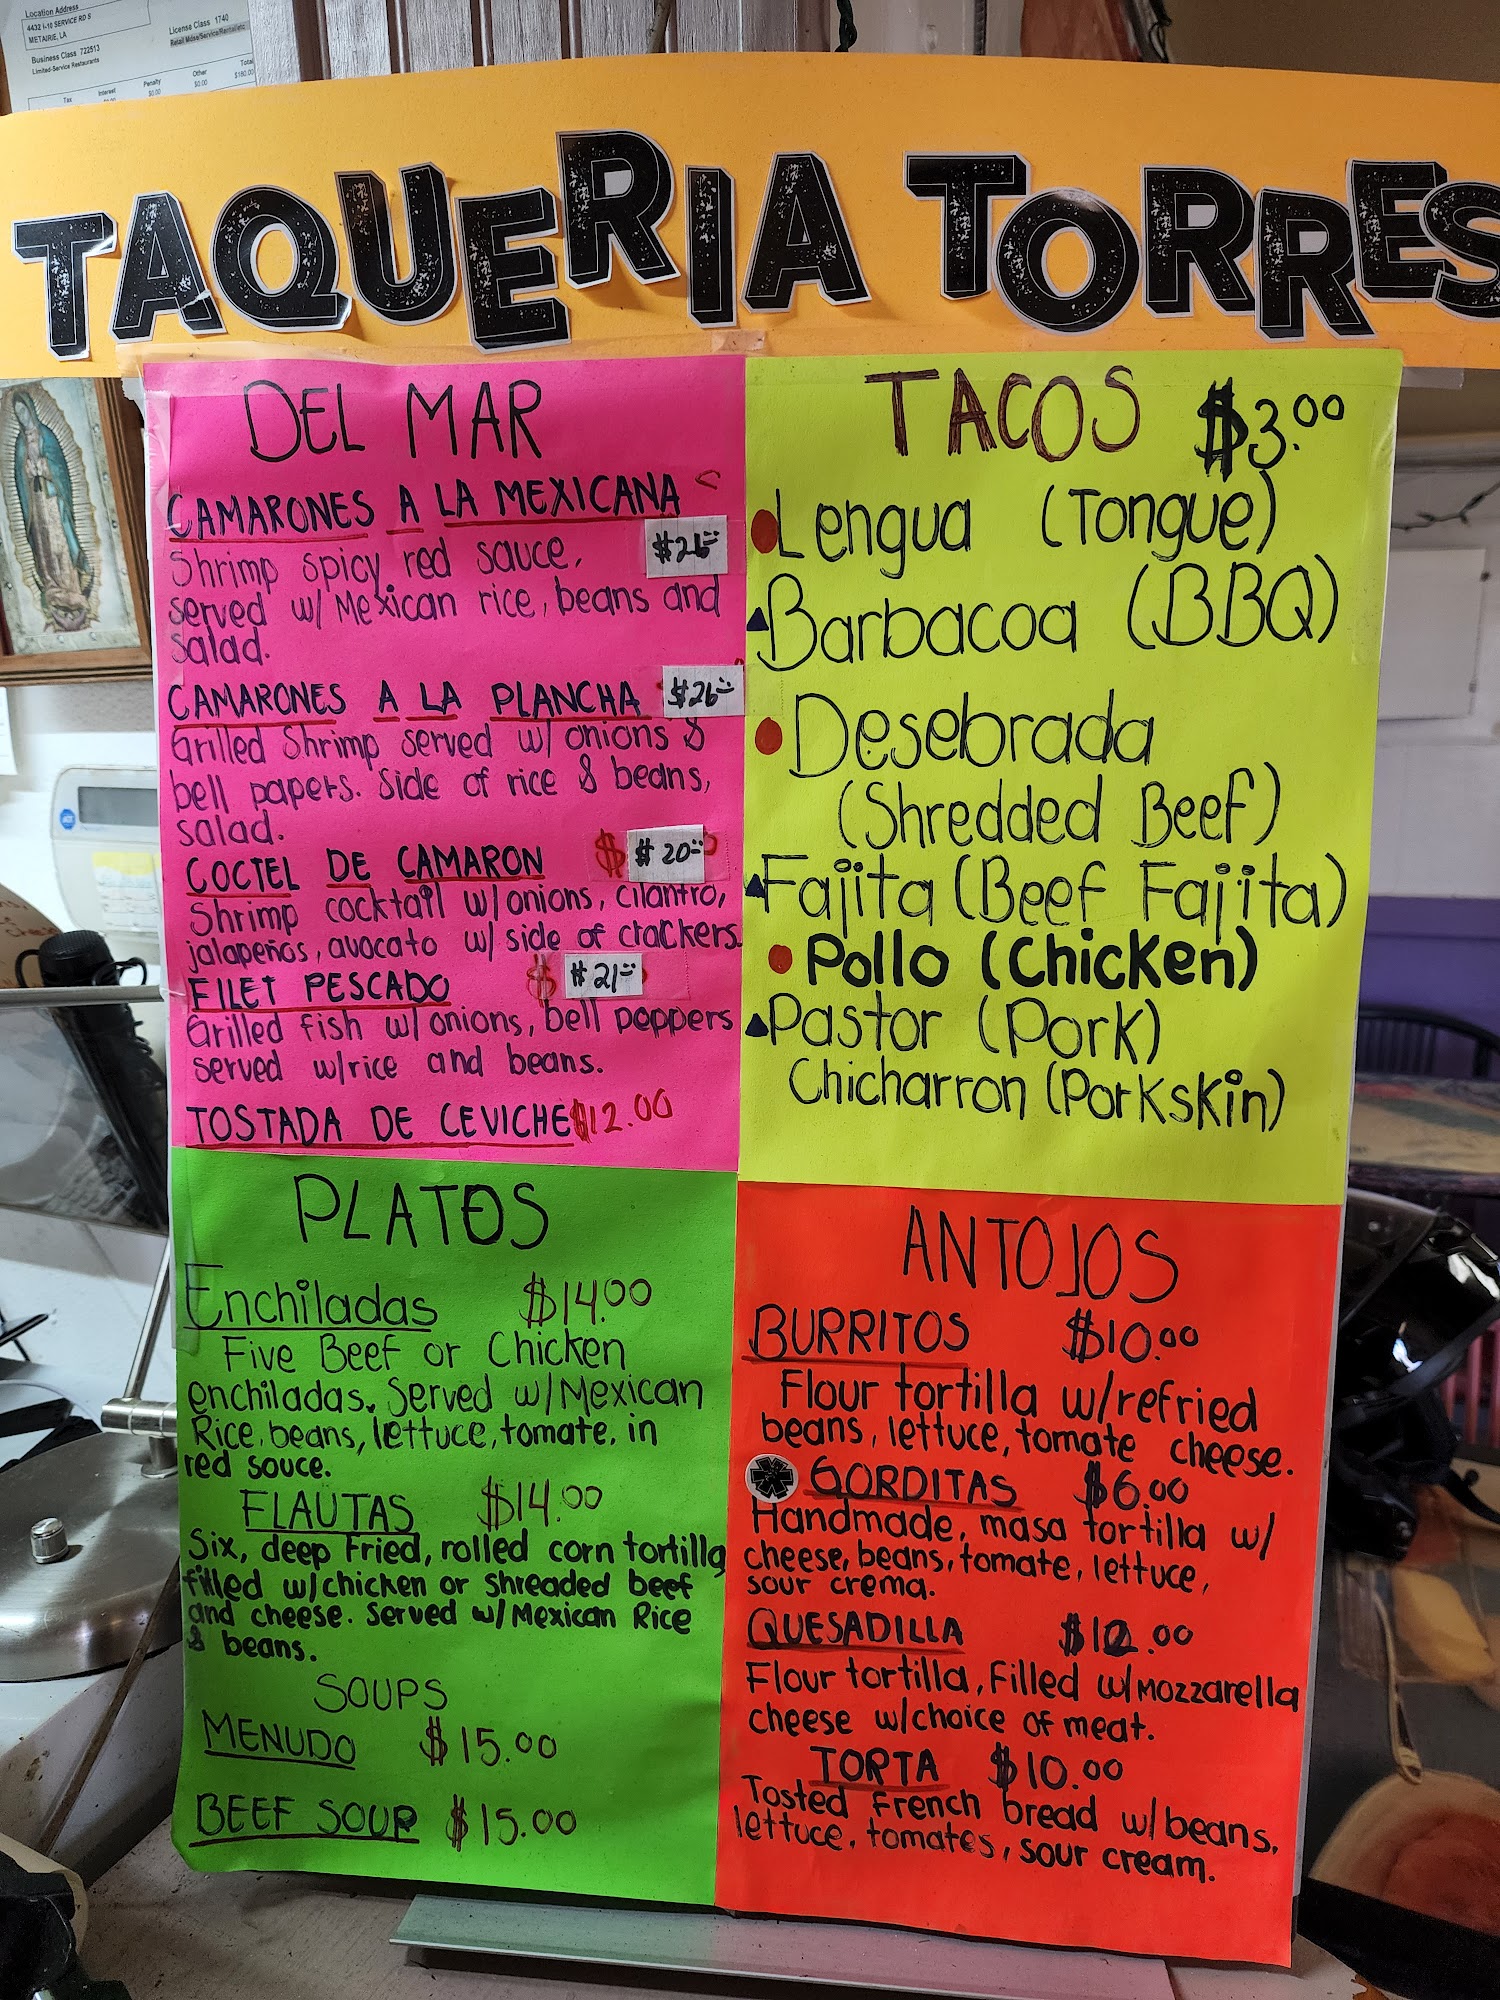 Location Address
4432 I-10 SERVICE RD S
METAIRIE, LA
License Class 1740
Retail Mdse/Service/Rental/etc
Business Class 722513
Limited-Service Restaurants
Tax Interest Penalty Other Total
$0.00 $0.00 $180.00
TAQUERIA TORRES
DEL MAR
CAMARONES A LA MEXICANA
$26
Shrimp spicy red sauce,
served w/ Mexican rice, beans and
salad.
CAMARONES A LA PLANCHA $26
Grilled Shrimp served w/ onions &
bell papers. Side of rice & beans,
salad.
COCTEL DE CAMARON $ $20
Shrimp cocktail w/onions, cilantro,
jalapeños, avocato w/ side of crackers.
FILET PESCADO $ $21
Grilled fish w/onions, bell peppers
served w/rice and beans.
TOSTADA DE CEVICHE $12.00
TACOS $3.00
Lengua (Tongue)
Barbacoa (BBQ)
Desebrada
(Shredded Beef)
Fajita (Beef Fajita)
Pollo (Chicken)
Pastor (Pork)
Chicharron (Porkskin)
PLATOS
Enchiladas $14.00
Five Beef or Chicken
enchiladas. Served w/Mexican
Rice, beans, lettuce, tomate, in
red souce.
FLAUTAS $14.00
Six, deep fried, rolled corn tortilla
filled w/chicken or Shreaded beef
and cheese. Served w/Mexican Rice
& beans.
SOUPS
MENUDO $15.00
BEEF SOUP $15.00
ANTOJOS
BURRITOS $10.00
Flour tortilla w/refried
beans, lettuce, tomate cheese.
GORDITAS $6.00
Handmade, masa tortilla w/
cheese, beans, tomate, lettuce,
sour crema.
QUESADILLA $12.00
Flour tortilla, Filled w/mozzarella
cheese w/choice of meat.
TORTA $10.00
Tosted French bread w/beans,
lettuce, tomates, sour cream.